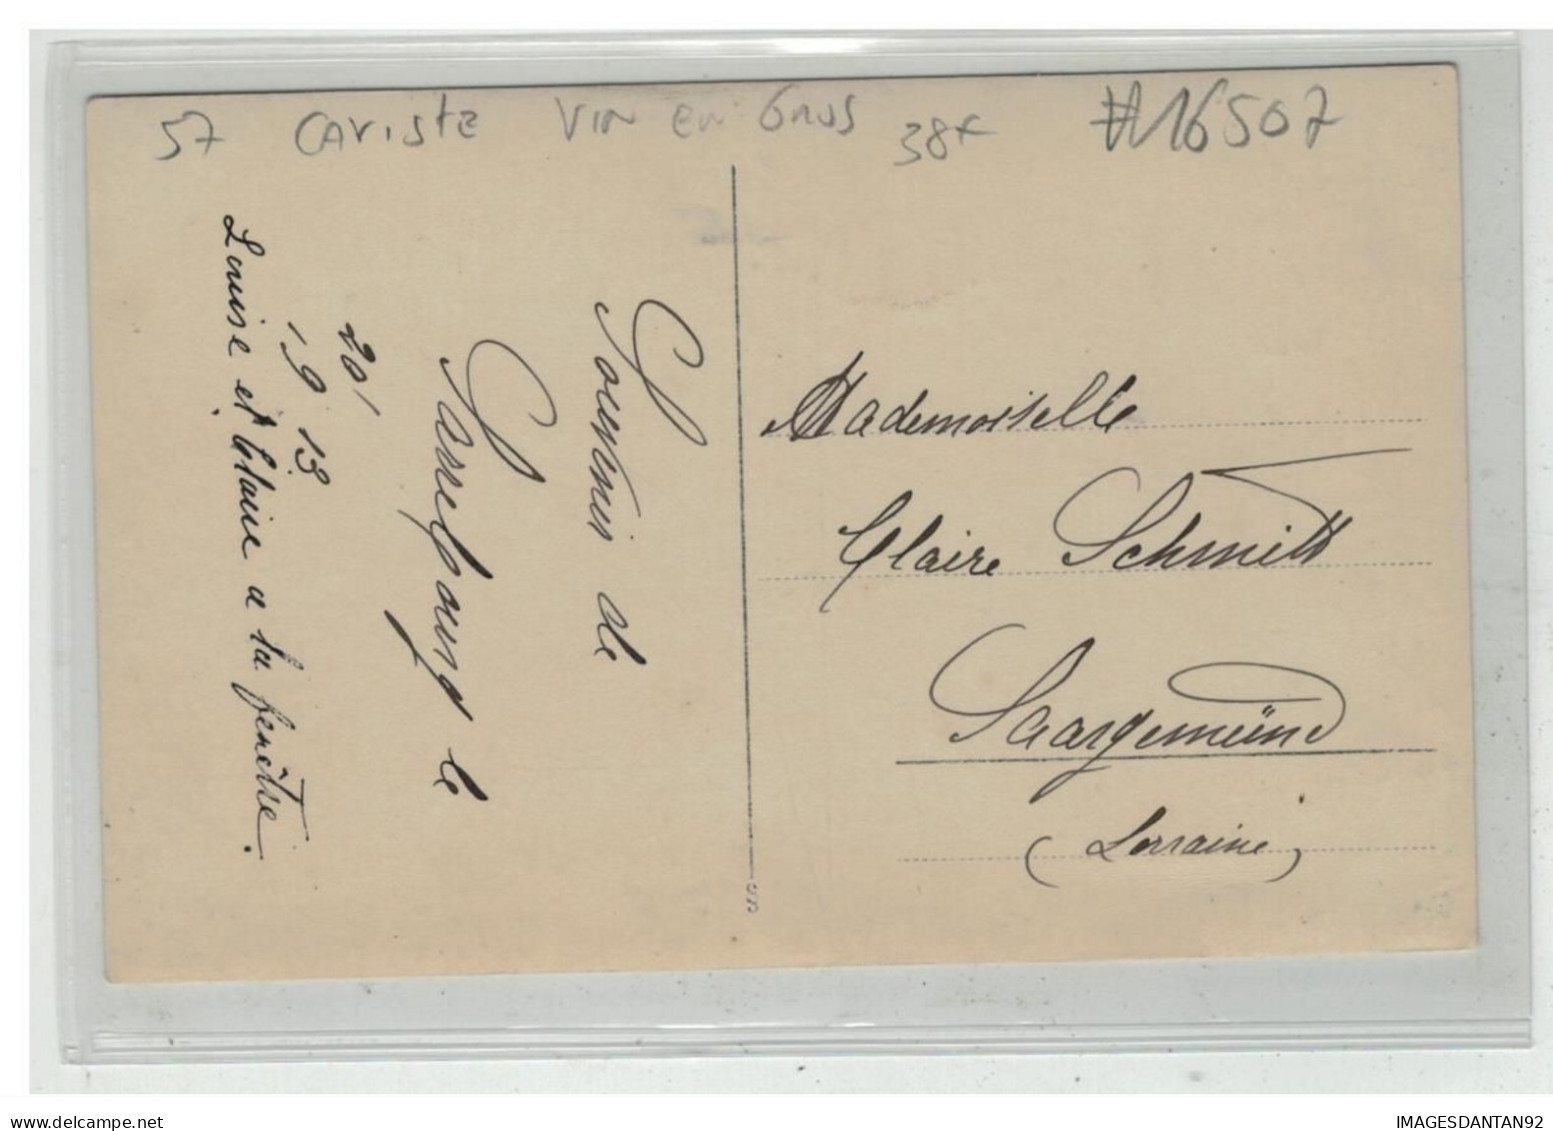 57 CAViste VIN EN GROS 38€ #16507
Souvenir de
Sarrebourg le
20/
19 13
Louise et Claire a la fenêtre.
Mademoiselle
Claire Schmitt
Saargemünd
(Lorraine)
SB
www.delcampe.net
IMAGESDANTAN92